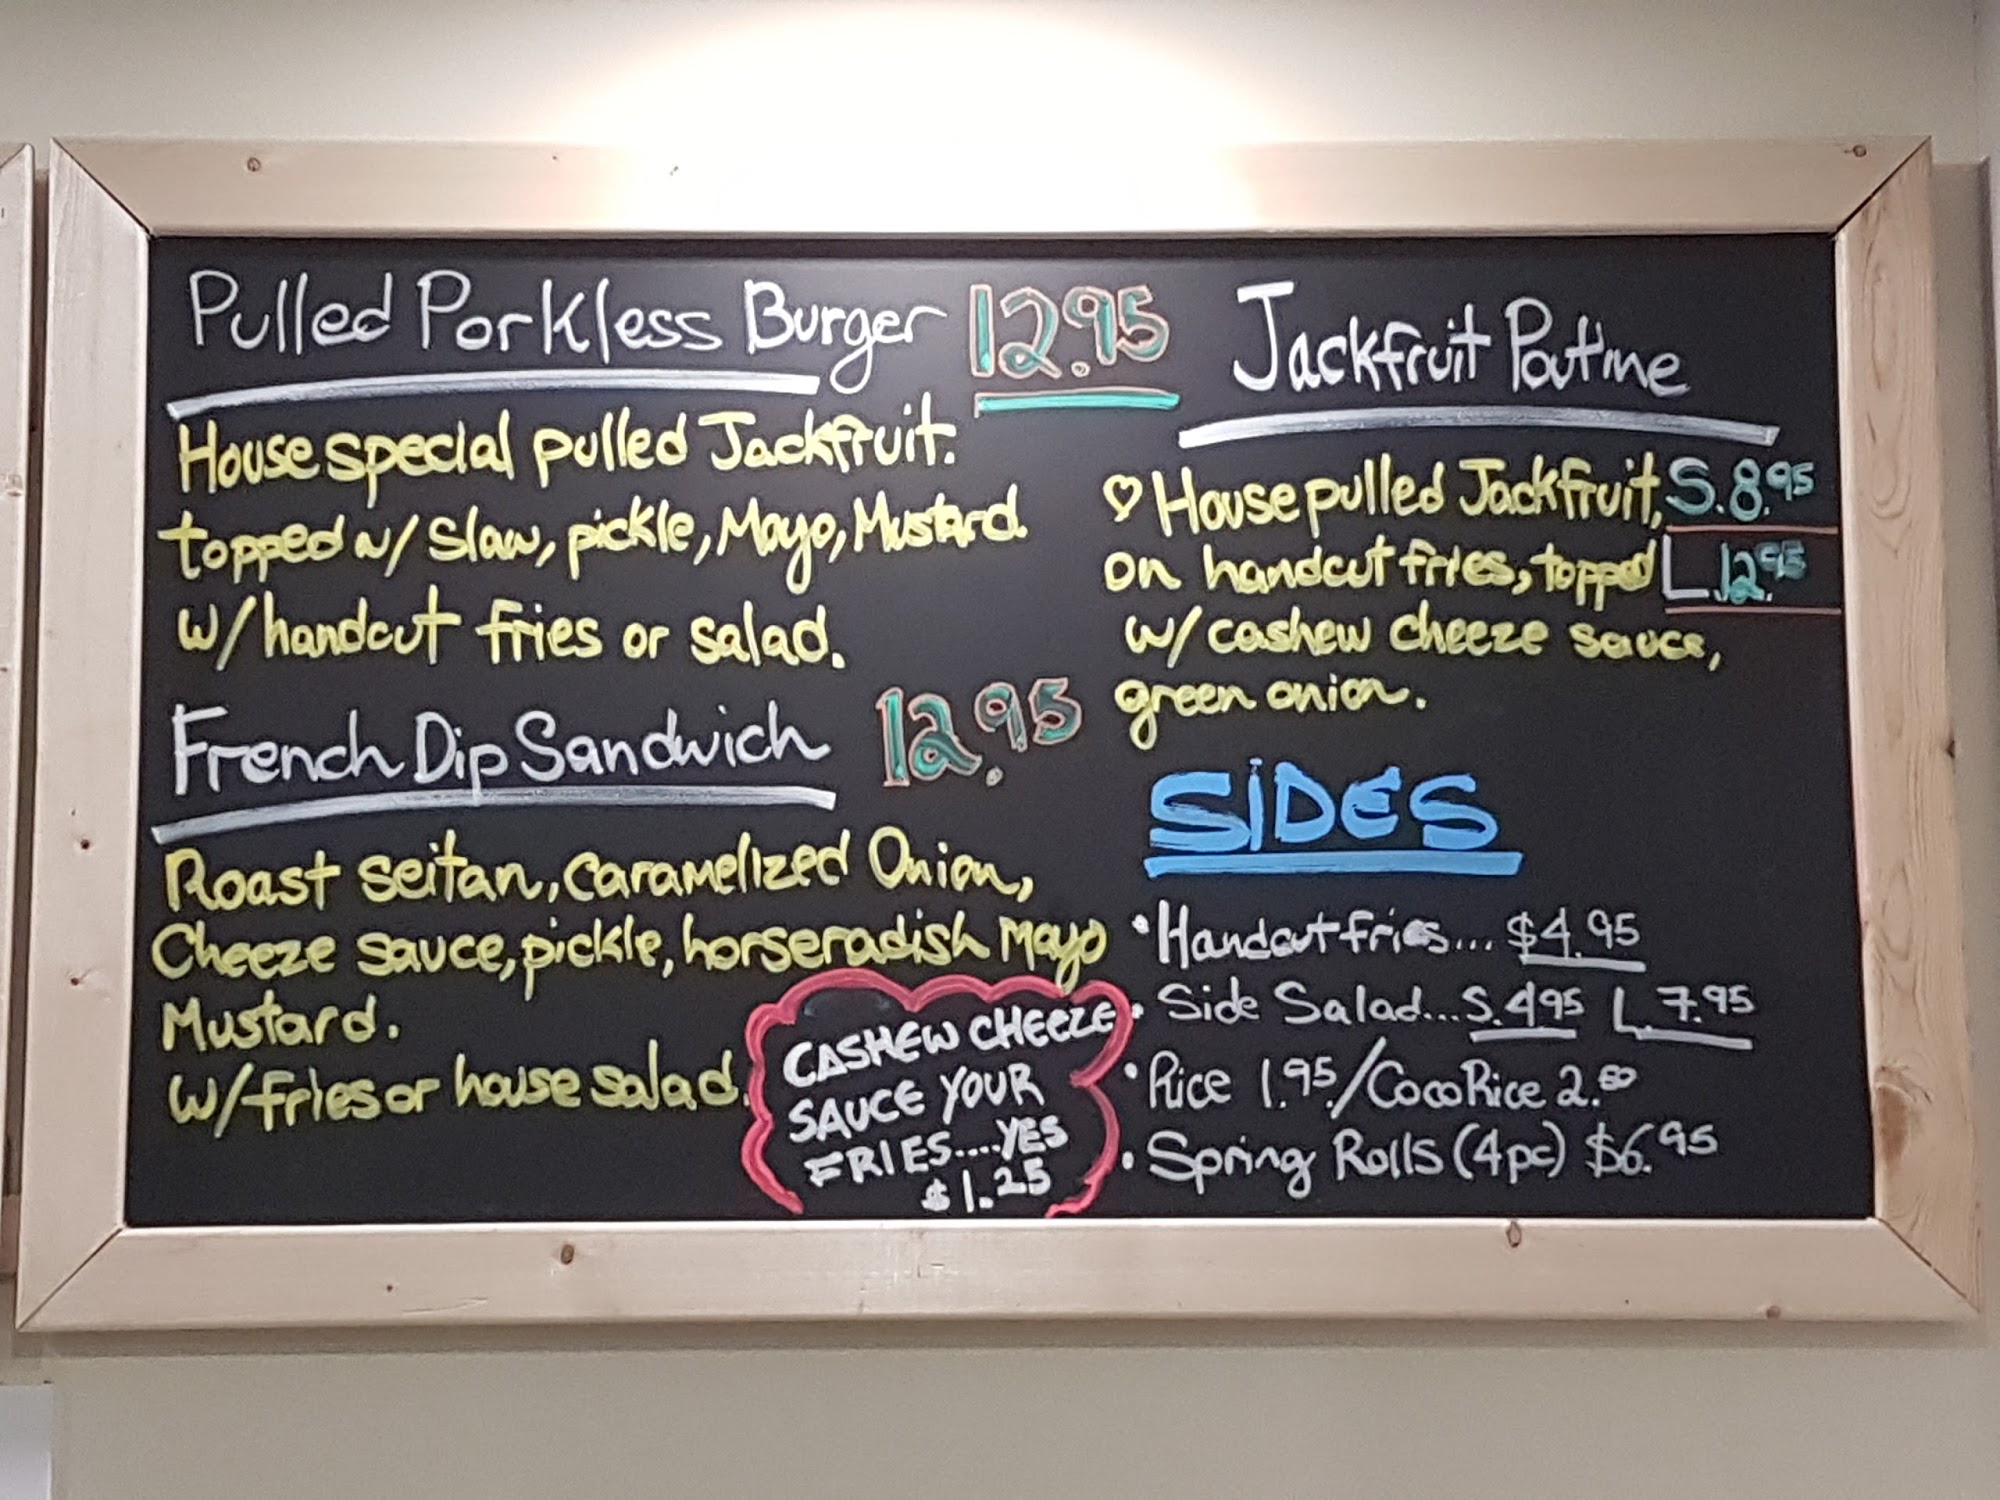 Pulled Porkless Burger 12.95
House special pulled Jackfruit.
topped w/ Slaw, pickle, Mayo, Mustard.
w/handcut fries or salad.
French Dip Sandwich 12.95
Roast seitan, caramelized Onion,
Cheeze sauce, pickle, horseradish Mayo
Mustard.
w/fries or house salad.
CASHEW CHEEZE
SAUCE YOUR
FRIES....YES
$1.25
Jackfruit Poutine
♡ House pulled Jackfruit, S. 8.95
on handcut fries, topped L. 12.95
w/ cashew cheeze sauce,
green onion.
SIDES
• Handcut fries... $4.95
• Side Salad... S. 4.95 L. 7.95
• Rice 1.95/CocoRice 2.80
• Spring Rolls (4pc) $6.95